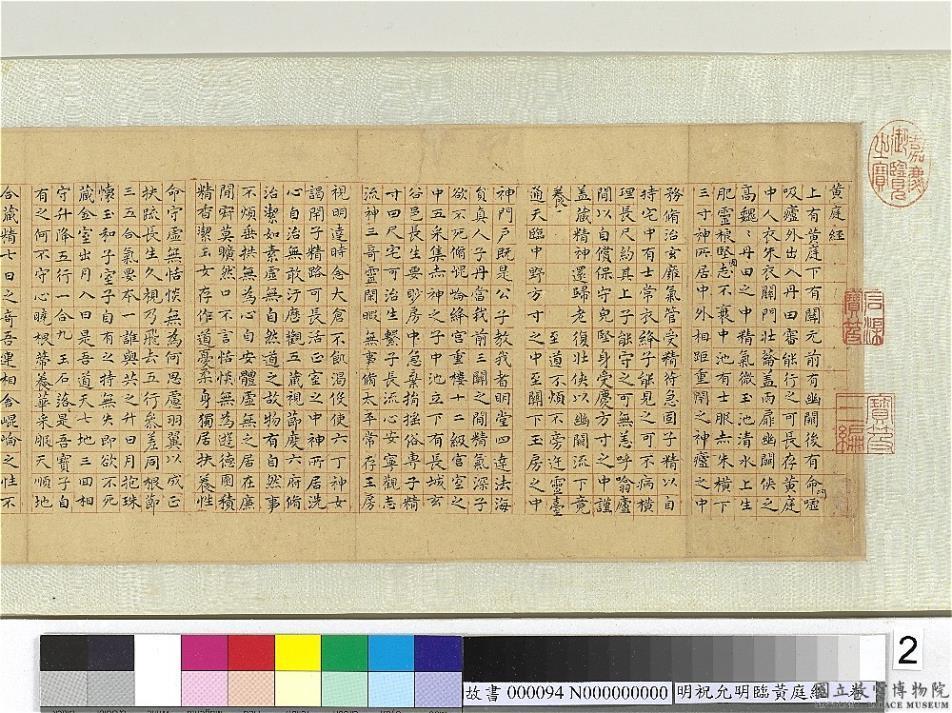 黃庭經
上有黃庭下有關元前有幽關後有命噓
吸廬外出入丹田審能行之可長存黃庭
中人衣朱衣關門壯蘥蓋兩扉幽關俠之
高巍巍丹田之中精氣微玉池清水上生
肥靈根堅志不衰中池有士服赤朱橫下
三寸神所居中外相距重閉之神廬之中
務脩治玄廱氣管受精符急固子精以自
持宅中有士常衣絳子能見之可不病橫
理長尺約其上子能守之可無恙呼噏廬
間以自償保守完堅身受慶方寸之中謹
蓋藏精神還歸老復壯俠以幽關流下竟
養 至道不煩不旁迕靈臺
通天臨中野方寸之中至關下玉房之中
神門戶既是公子教我者明堂四達法海
員真人子丹當我前三關之間精氣深子
欲不死脩崑崙絳宮重樓十二級宮室之
中五采集赤神之子中池立下有長城玄
谷邑長生要眇房中急棄捐搖俗專子精
寸田尺宅可治生繫子長流心安寧觀志
流神三奇靈閑暇無事脩太平常存玉房
視明達時念大倉不飢渴侯使六丁神女
謁閉子精路可長活正室之中神所居洗
心自治無敢汙歷觀五藏視節度六府脩
治潔如素虛無自然道之故物有自然事
不煩垂拱無為心自安體虛無之居在廉
間寂莫曠然口不言恬惔無為遊德園積
精香潔玉女存作道憂柔身獨居扶養性
命守虛無恬惔無為何思慮羽翼以成正
扶疏長生久視乃飛去五行參差同根節
三五合氣要本一誰與共之升日月抱珠
懷玉和子室子自有之持無失即欲不死
藏金室出月入日是吾道天七地三回相
守升降五行一合九玉石落是吾寶子自
有之何不守心曉根蒂養華采服天順地
合藏精七日之奇吾連相合崐崘之性不
嘉慶御覽之寶
石渠寶笈
寶笈三編
2
故書 000094 N000000000 明祝允明臨黃庭經 卷
國立故宮博物院
NATIONAL PALACE MUSEUM